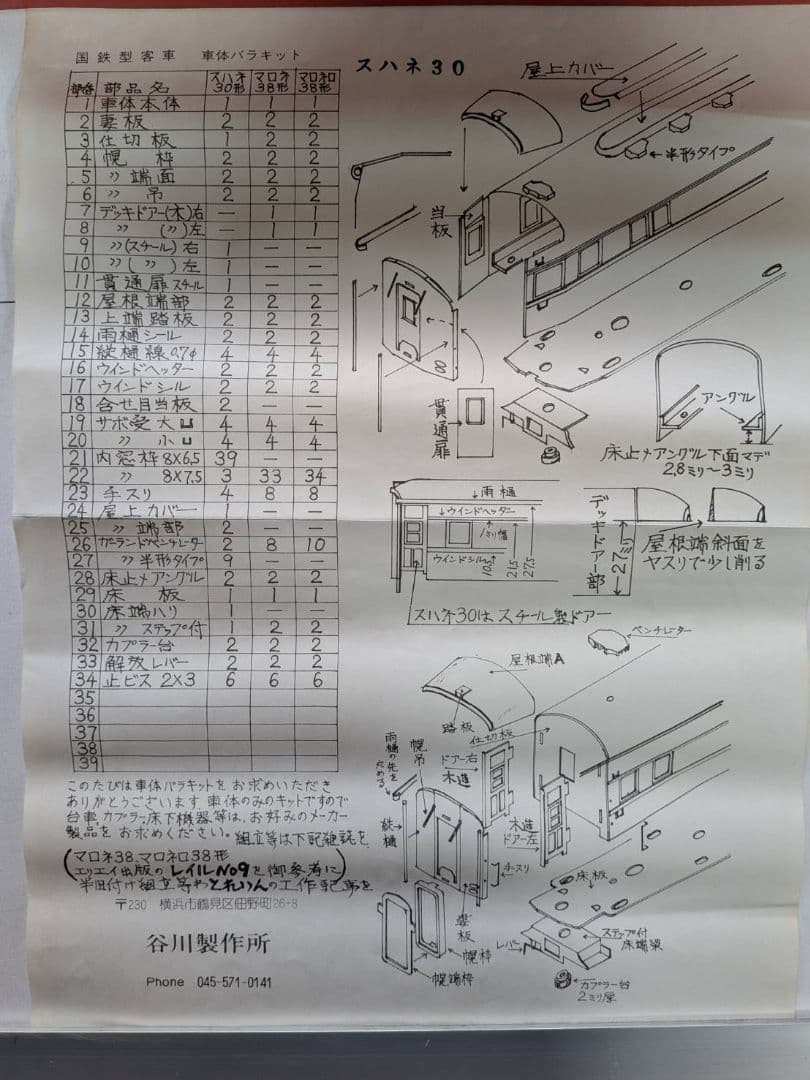 国鉄型客車 車体バラキット
スハネ30
部番 部品名 スハネ30形 マロネ38形 マロネロ38形
1 車体本体 1 1 1
2 妻板 2 2 2
3 仕切板 1 2 2
4 幌枠 2 2 2
5 〃端面 2 2 2
6 〃吊 2 2 2
7 デッキドアー(木)右 — 1 1
8 〃(〃)左 — 1 1
9 〃(スチール)右 1 — —
10 〃(〃)左 1 — —
11 貫通扉スチール 1 — —
12 屋根端部 2 2 2
13 上端踏板 2 2 2
14 雨樋シール 2 2 2
15 縦樋線0.7φ 4 4 4
16 ウインドヘッター 2 2 2
17 ウインドシル 2 2 2
18 合せ目当板 2 — —
19 サボ受大 4 4 4
20 〃小 4 4 4
21 内窓枠8X6.5 39 — —
22 〃8X7.5 3 33 34
23 手スリ 4 8 8
24 屋上カバー 1 — —
25 〃端部 2 — —
26 ガーランドベンチレーター 2 8 10
27 〃半形タイプ 9 — —
28 床止メアングル 2 2 2
29 床板 1 1 1
30 床端ハリ 1 — —
31 〃ステップ付 1 2 2
32 カプラー台 2 2 2
33 解放レバー 2 2 2
34 止ビス 2×3 6 6 6
35
36
37
38
39
このたびは車体バラキットをお求めいただき
ありがとうございます。車体のみのキットですので
台車、カプラー、床下機器等は、お好みのメーカー
製品をお求めください。組立等は下記雑誌を
(マロネ38、マロネロ38形
エリエイ出版のレイルNo9を御参考に
半田付け組立等やとれいんの工作記事を
〒230 横浜市鶴見区佃野町26-8
谷川製作所
Phone 045-571-0141
屋上カバー
半形タイプ
当板
貫通扉
アングル
床止メアングル下面マデ
2,8ミリ〜3ミリ
雨樋
ウインドヘッター
ウインドシル
21.5
27.5
デッキドアー部
27ミリ
屋根端斜面を
ヤスリで少し削る
スハネ30はスチール製ドアー
ベンチレーター
屋根端A
踏板
仕切板
雨樋の先を
丸める
幌吊
ドアー右
木造
木造
ドアー左
縦樋
手スリ
妻板
床板
幌枠
幌端枠
レバー
ステップ付
床端梁
カプラー台
2ミリ厚